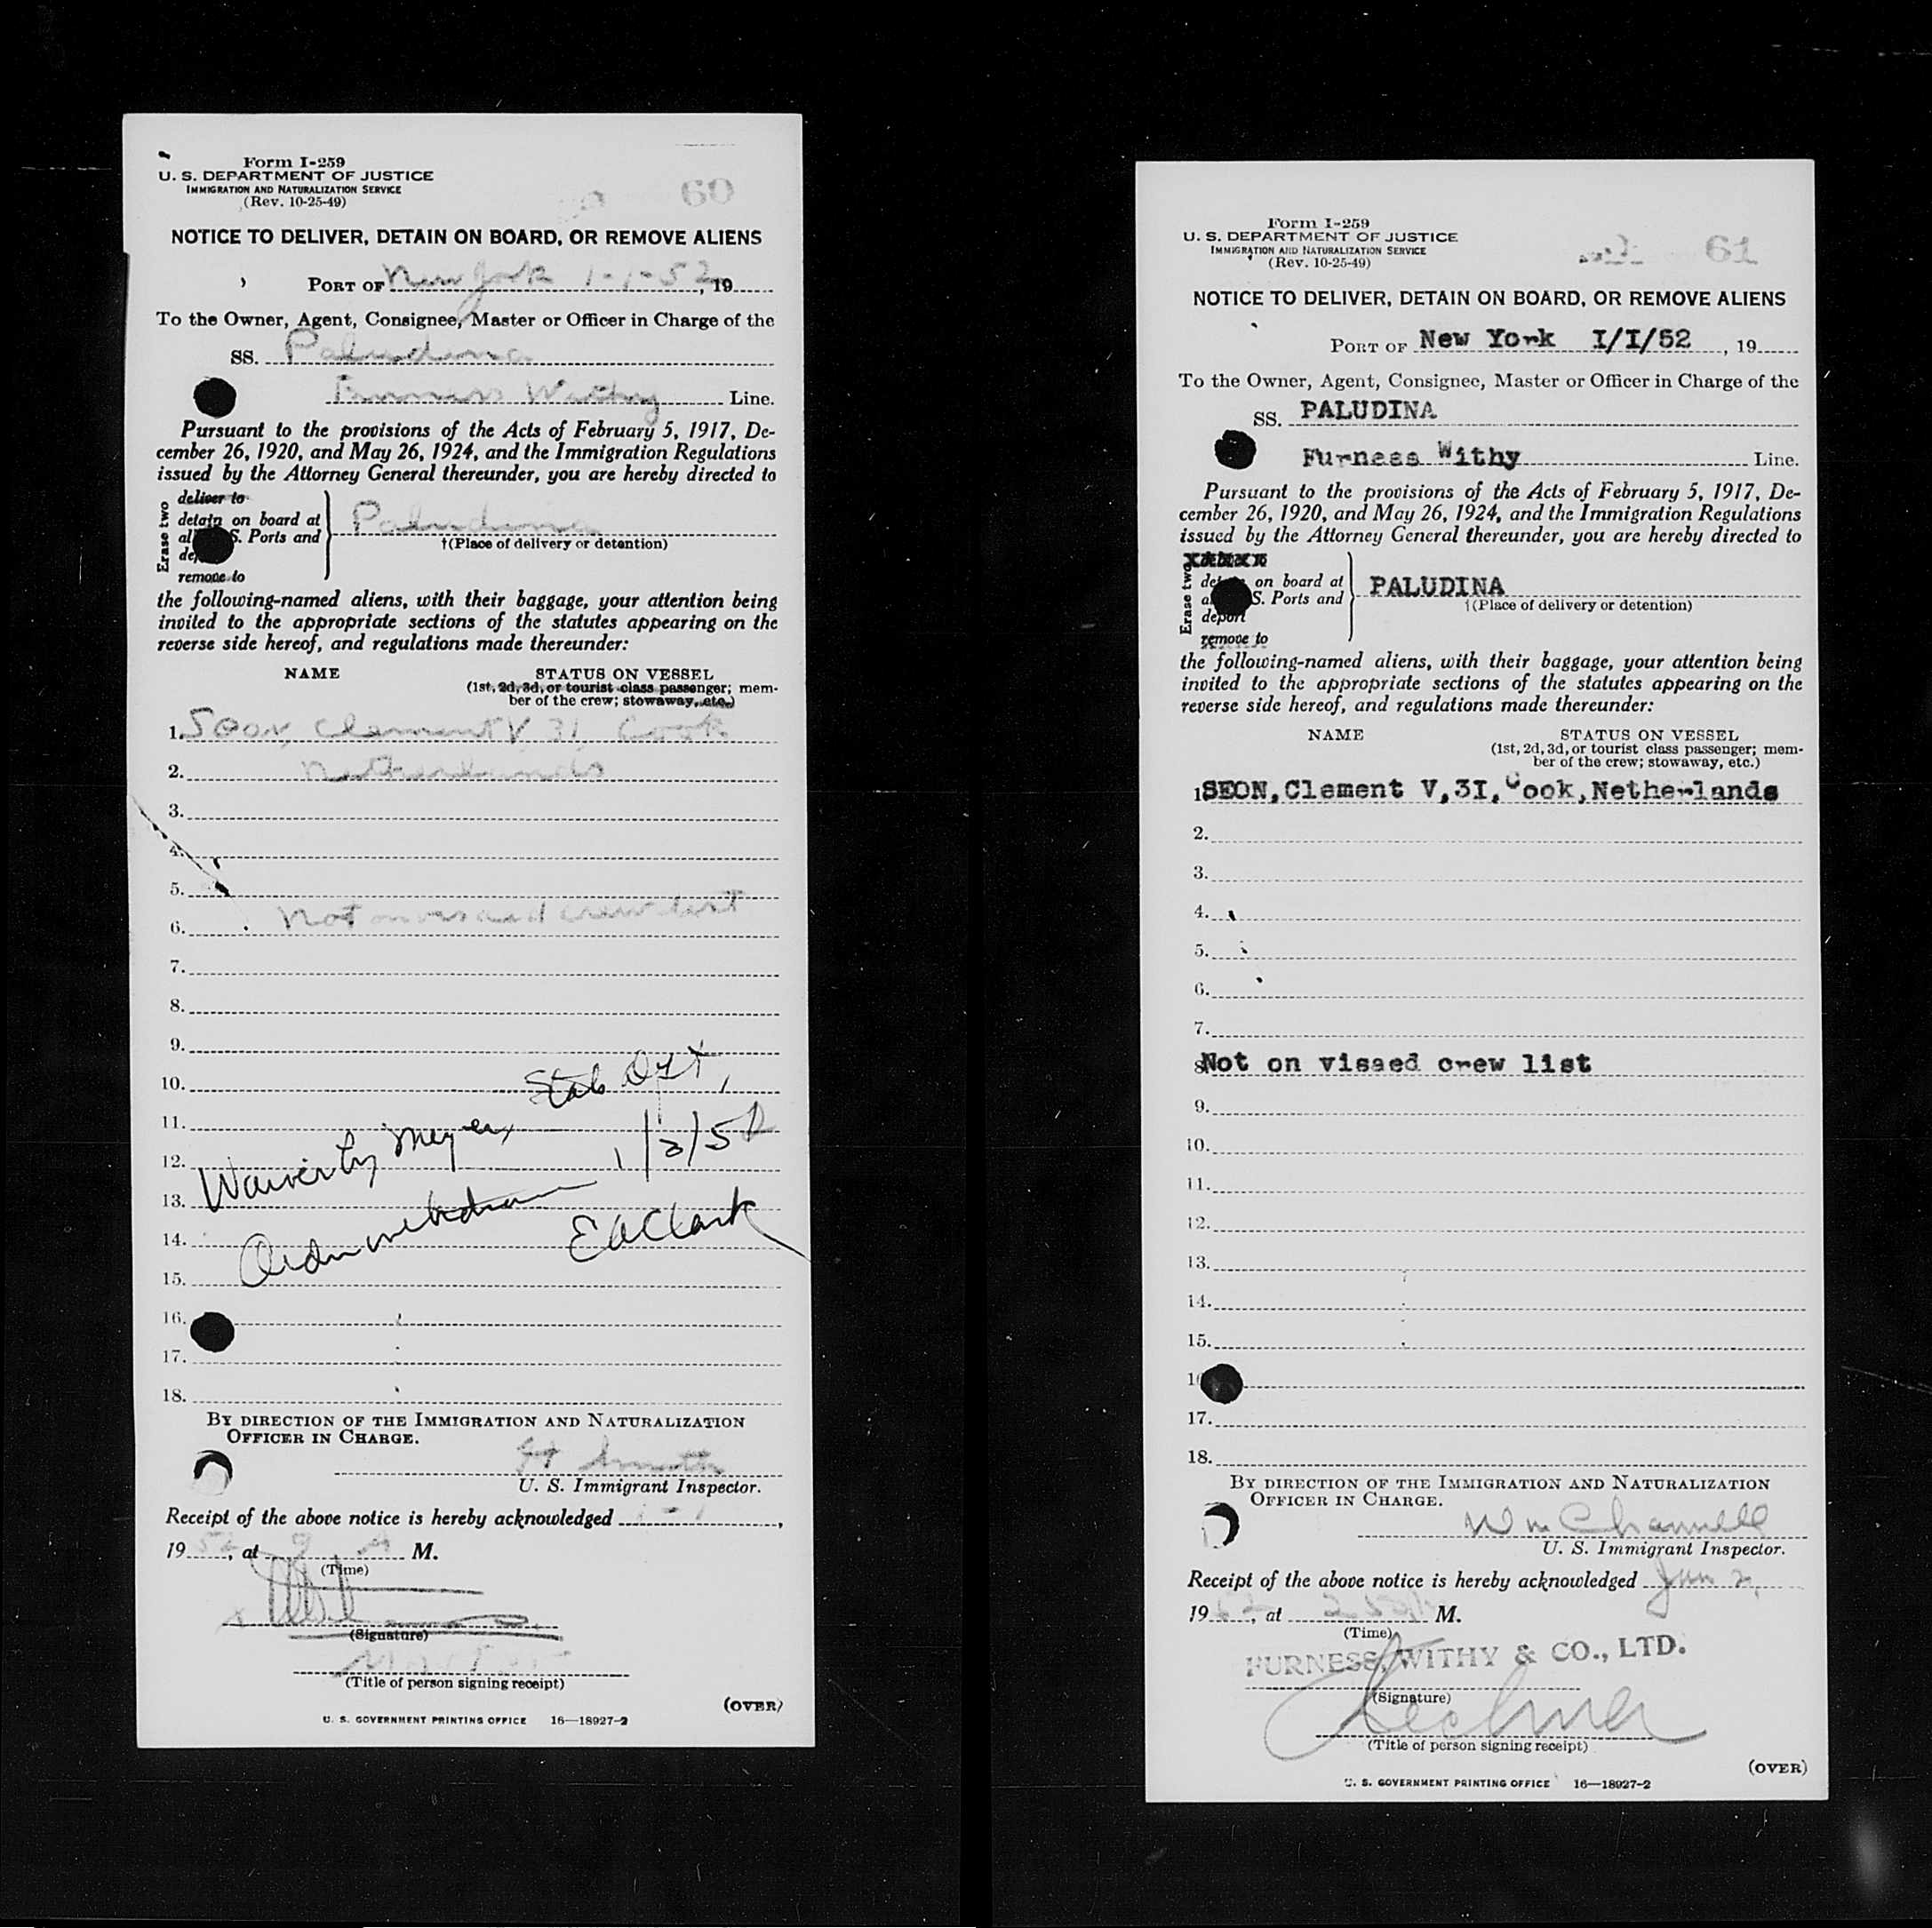 Form I-259
U. S. DEPARTMENT OF JUSTICE
IMMIGRATION AND NATURALIZATION SERVICE
(Rev. 10-25-49)
60
NOTICE TO DELIVER, DETAIN ON BOARD, OR REMOVE ALIENS
PORT OF New York 1-1-52, 19
To the Owner, Agent, Consignee, Master or Officer in Charge of the
SS. Paludina
Furness Withy Line.
Pursuant to the provisions of the Acts of February 5, 1917, De-
cember 26, 1920, and May 26, 1924, and the Immigration Regulations
issued by the Attorney General thereunder, you are hereby directed to
Erase two
deliver to
detain on board at
al S. Ports and
de
remove to
Paludina
†(Place of delivery or detention)
the following-named aliens, with their baggage, your attention being
invited to the appropriate sections of the statutes appearing on the
reverse side hereof, and regulations made thereunder:
NAME STATUS ON VESSEL
(1st, 2d, 3d, or tourist class passenger; mem-
ber of the crew; stowaway, etc.)
1. Seon, Clement V 31, Cook
2. Netherlands
3.
4.
5.
6. Not on visaed crew list
7.
8.
9.
10.
11.
12. 1/3/52
13.
14. E A Clark
15.
16.
17.
18.
BY DIRECTION OF THE IMMIGRATION AND NATURALIZATION
OFFICER IN CHARGE.
Smith
U. S. Immigrant Inspector.
Receipt of the above notice is hereby acknowledged 1-1,
19 52, at 9 A M.
(Time)
(Signature)
(Title of person signing receipt)
(OVER)
U. S. GOVERNMENT PRINTING OFFICE 16—18927-2
Form I-259
U. S. DEPARTMENT OF JUSTICE
IMMIGRATION AND NATURALIZATION SERVICE
(Rev. 10-25-49)
61
NOTICE TO DELIVER, DETAIN ON BOARD, OR REMOVE ALIENS
PORT OF New York I/I/52, 19
To the Owner, Agent, Consignee, Master or Officer in Charge of the
SS. PALUDINA
Furness Withy Line.
Pursuant to the provisions of the Acts of February 5, 1917, De-
cember 26, 1920, and May 26, 1924, and the Immigration Regulations
issued by the Attorney General thereunder, you are hereby directed to
Erase two
det on board at
a S. Ports and
deport
remove to
PALUDINA
†(Place of delivery or detention)
the following-named aliens, with their baggage, your attention being
invited to the appropriate sections of the statutes appearing on the
reverse side hereof, and regulations made thereunder:
NAME STATUS ON VESSEL
(1st, 2d, 3d, or tourist class passenger; mem-
ber of the crew; stowaway, etc.)
1SEON, Clement V, 3I, Cook, Netherlands
2.
3.
4.
5.
6.
7.
8Not on visaed crew list
9.
10.
11.
12.
13.
14.
15.
16
17.
18.
BY DIRECTION OF THE IMMIGRATION AND NATURALIZATION
OFFICER IN CHARGE.
Wm Channell
U. S. Immigrant Inspector.
Receipt of the above notice is hereby acknowledged Jan 2,
1952, at M.
(Time)
FURNESS, WITHY & CO., LTD.
(Signature)
(Title of person signing receipt)
(OVER)
U. S. GOVERNMENT PRINTING OFFICE 16—18927-2